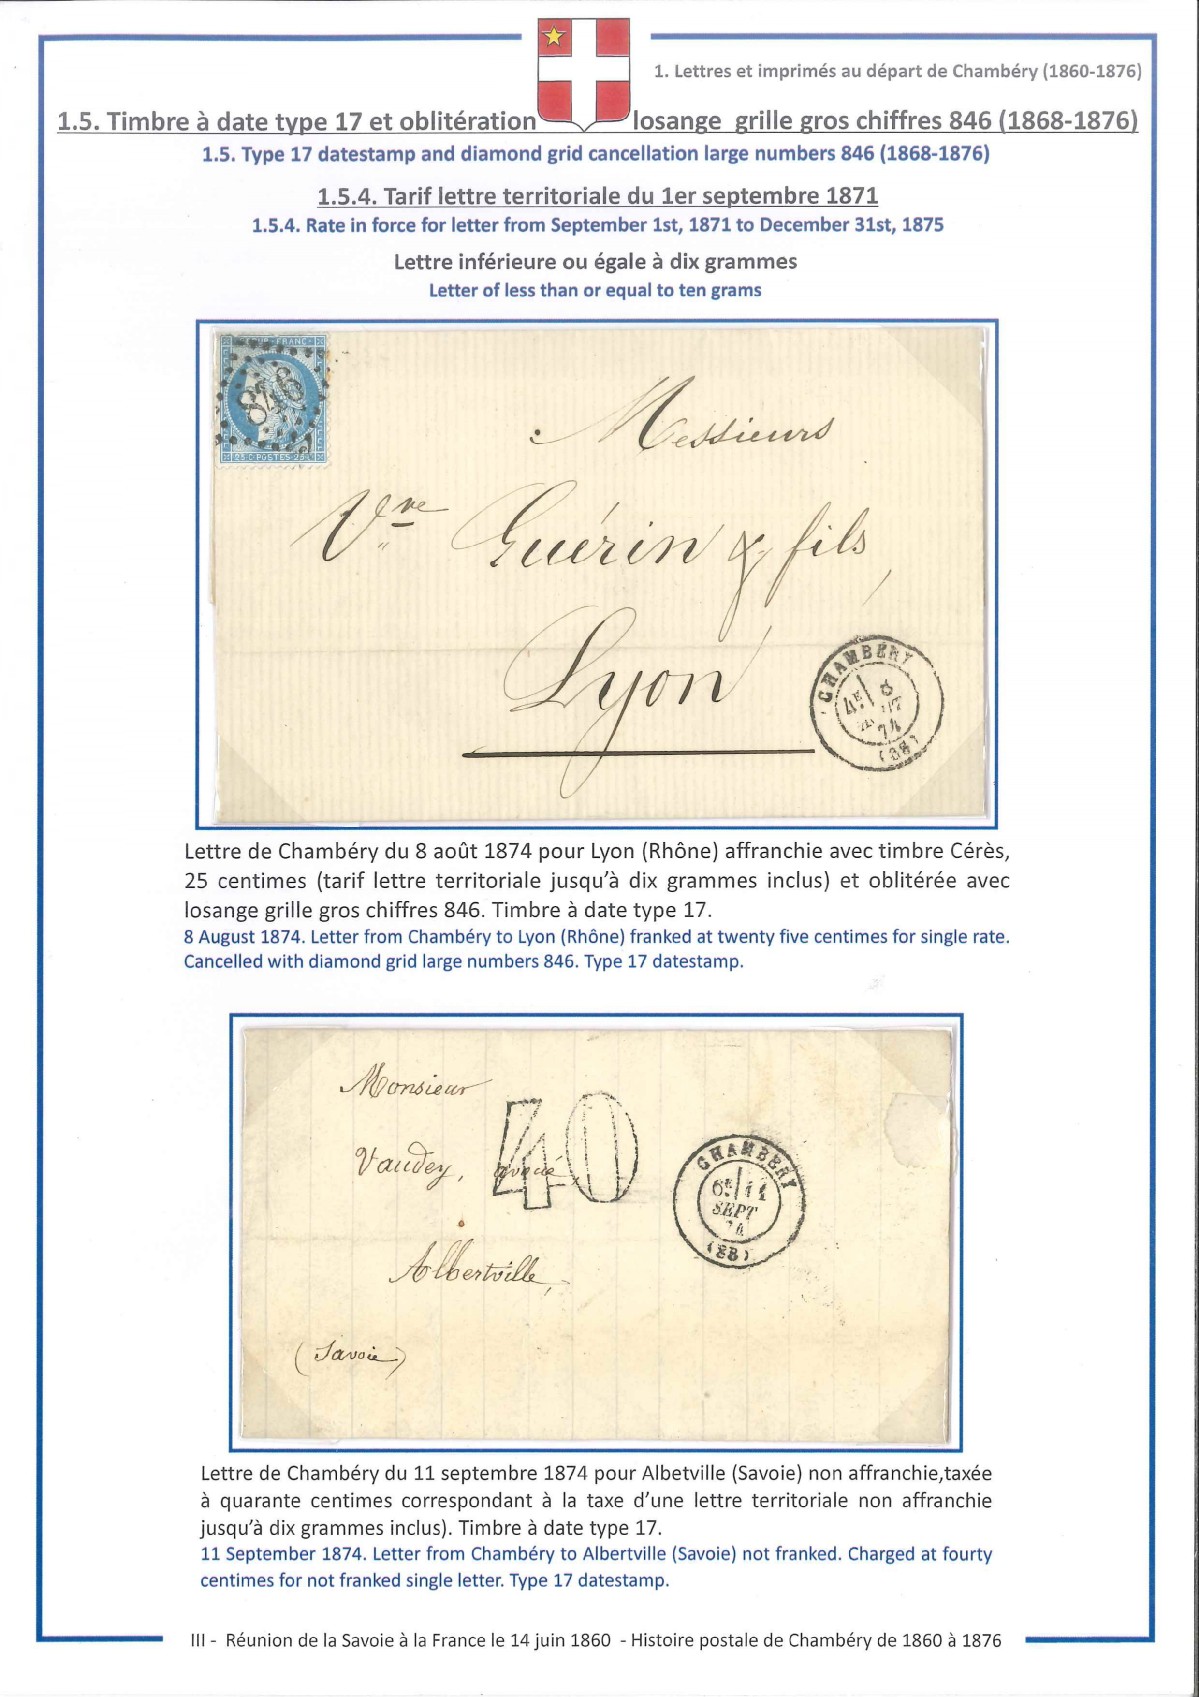 1. Lettres et imprimés au départ de Chambéry (1860-1876)
1.5. Timbre à date type 17 et oblitération losange grille gros chiffres 846 (1868-1876)
1.5. Type 17 datestamp and diamond grid cancellation large numbers 846 (1868-1876)
1.5.4. Tarif lettre territoriale du 1er septembre 1871
1.5.4. Rate in force for letter from September 1st, 1871 to December 31st, 1875
Lettre inférieure ou égale à dix grammes
Letter of less than or equal to ten grams
846
25 C. POSTES 25 C.
Messieurs
Vve Guérin & fils,
Lyon
CHAMBÉRY
4E
74
(88)
Lettre de Chambéry du 8 août 1874 pour Lyon (Rhône) affranchie avec timbre Cérès,
25 centimes (tarif lettre territoriale jusqu'à dix grammes inclus) et oblitérée avec
losange grille gros chiffres 846. Timbre à date type 17.
8 August 1874. Letter from Chambéry to Lyon (Rhône) franked at twenty five centimes for single rate.
Cancelled with diamond grid large numbers 846. Type 17 datestamp.
Monsieur
Vaudey, avoué,
40
Albertville,
(Savoie)
CHAMBÉRY
6E 11
SEPT
74
(88)
Lettre de Chambéry du 11 septembre 1874 pour Albetville (Savoie) non affranchie,taxée
à quarante centimes correspondant à la taxe d'une lettre territoriale non affranchie
jusqu'à dix grammes inclus). Timbre à date type 17.
11 September 1874. Letter from Chambéry to Albertville (Savoie) not franked. Charged at fourty
centimes for not franked single letter. Type 17 datestamp.
III - Réunion de la Savoie à la France le 14 juin 1860 - Histoire postale de Chambéry de 1860 à 1876